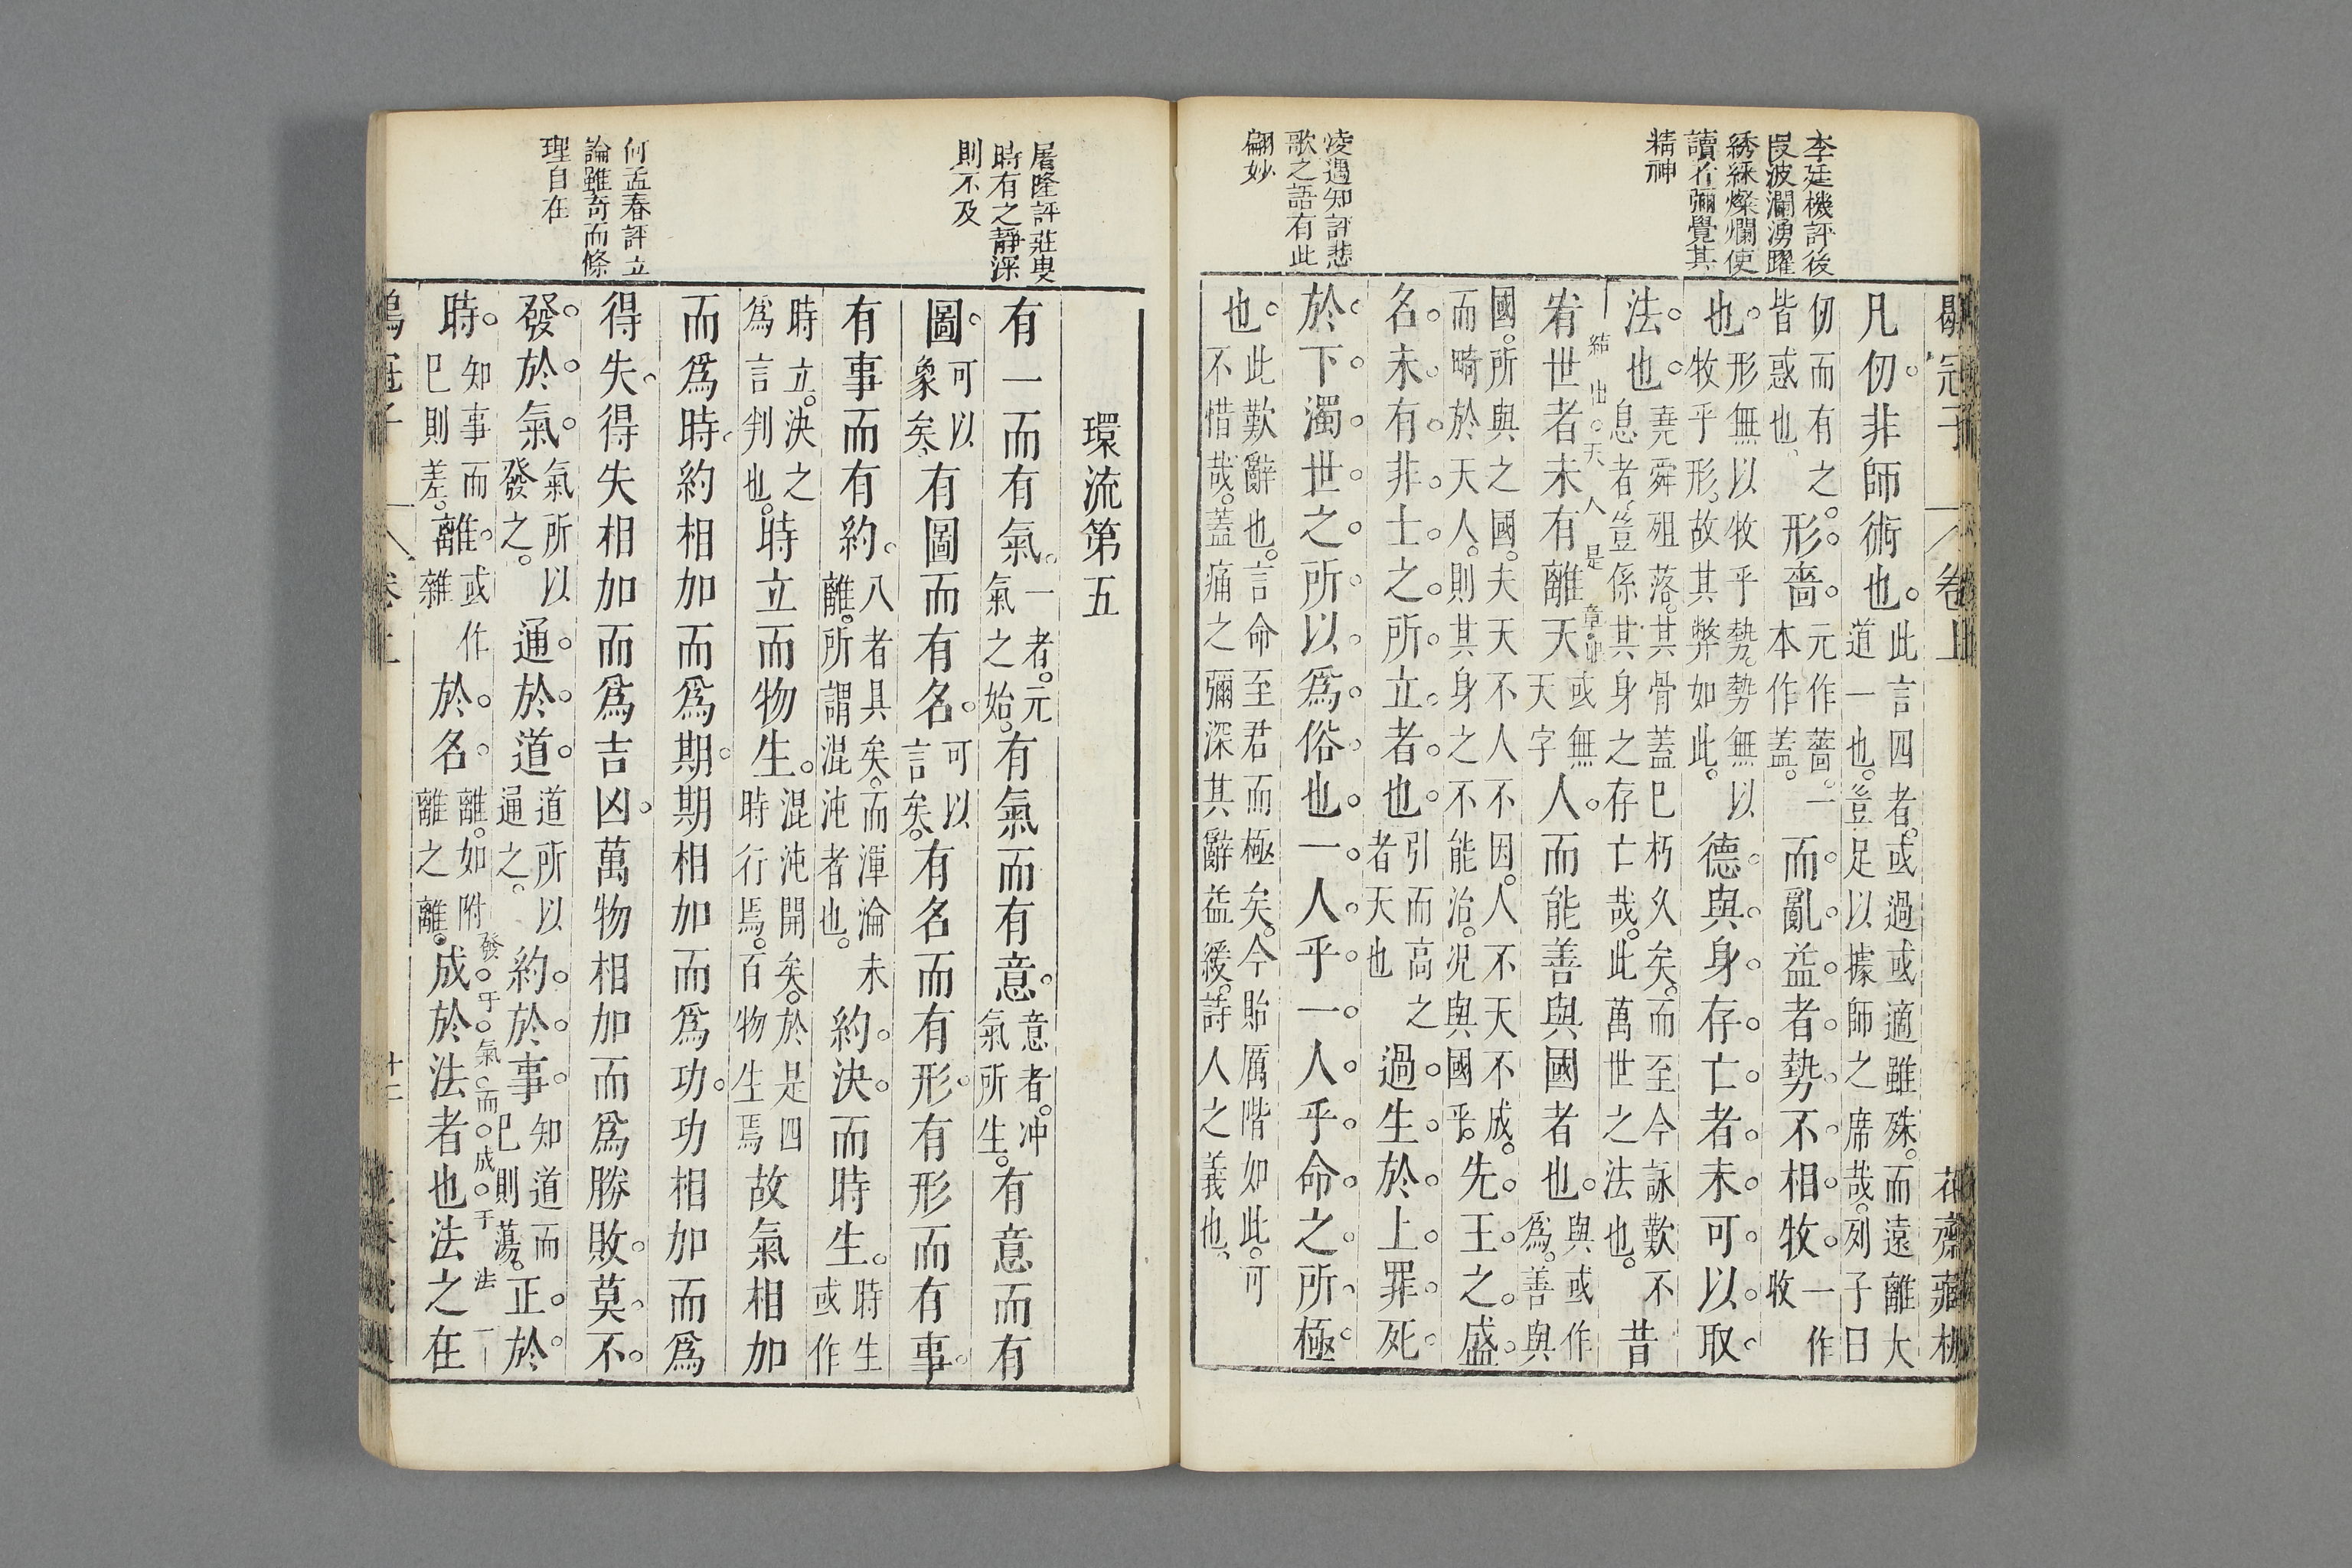 李廷機評後
段波瀾湧躍
綉綵燦爛使
讀者彌覺其
精神
凌遇知評悲
歌之語有此
翩妙
冠子 卷上 花齋藏板
凡仞非師術也此言四者或過或適雖殊而遠離大道一也豈足以據師之席哉列子曰
仞而有之皆惑也形嗇元作薔一本作蓋而亂益者勢不相牧一作收
也形無以牧乎勢勢無以牧乎形故其弊如此德與身存亡者未可以取
法也堯舜殂落其骨蓋巳朽久矣而至今詠歎不息者豈係其身之存亡哉此萬世之法也昔
結出天人是章
宥世者未有離天或無天字人而能善與國者也與或作爲善與
國所與之國夫天不人不因人不天不成而畸於天人則其身之不能治況與國乎先王之盛
名未有非士之所立者也引而高之者天也過生於上罪死
於下濁世之所以爲俗也一人乎一人乎命之所極
也此歎辭也言命至君而極矣今貽厲階如此可不惜哉蓋痛之彌深其辭益緩詩人之義也
屠隆評莊叟
時有之靜深
則不及
何孟春評立
論雖奇而條
理自在
環流第五
有一而有氣一者元氣之始有氣而有意意者冲氣所生有意而有
圖可以象矣有圖而有名可以言矣有名而有形有形而有事
有事而有約八者具矣而渾淪未離所謂混沌者也約決而時生時生或作
時立決之爲言判也時立而物生混沌開矣於是四時行焉百物生焉故氣相加
而爲時約相加而爲期期相加而爲功功相加而爲
得失得失相加而爲吉凶萬物相加而爲勝敗莫不
發於氣氣所以發之通於道道所以通之約於事知道而巳則蕩正於
發于氣而成于法
時知事而巳則差離或作雜於名離如附離之離成於法者也法之在
冠子 卷上